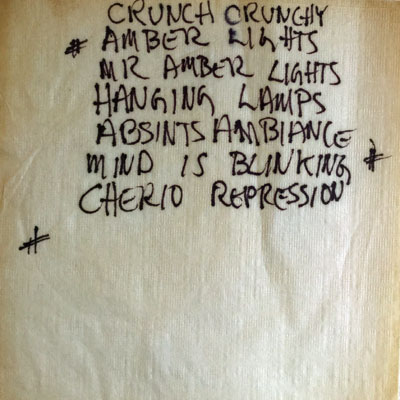 CRUNCH CRUNCHY
# AMBER LIGHTS
MR AMBER LIGHTS
HANGING LAMPS
ABSINTS AMBIANCE
MIND IS BLINKING #
CHERIO REPRESSION
#